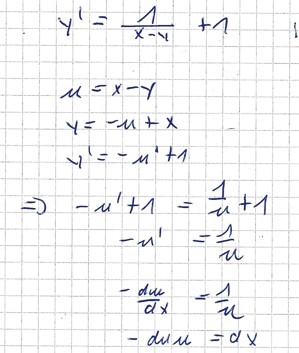 y' = 1/(x-y) + 1
u = x-y
y = -u + x
y' = -u' + 1
=> -u' + 1 = 1/u + 1
-u' = 1/u
-du/dx = 1/u
-du u = dx